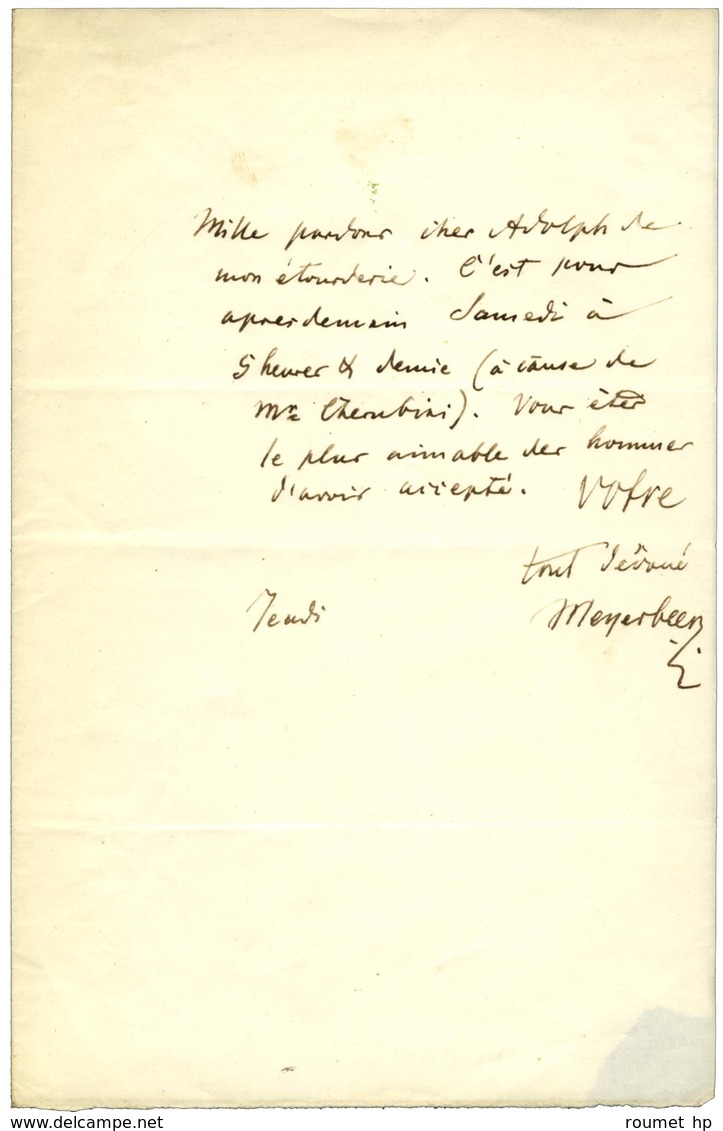 Mille pardons cher Adolph de
mon étourderie. C'est pour
apresdemain Samedi à
5 heures & demie (à cause de
Mr Cherubini). Vous êtes
le plus aimable des hommes
d'avoir accepté. Votre
tout dévoué
Jeudi Meyerbeer
www.delcampe.net
roumet hp